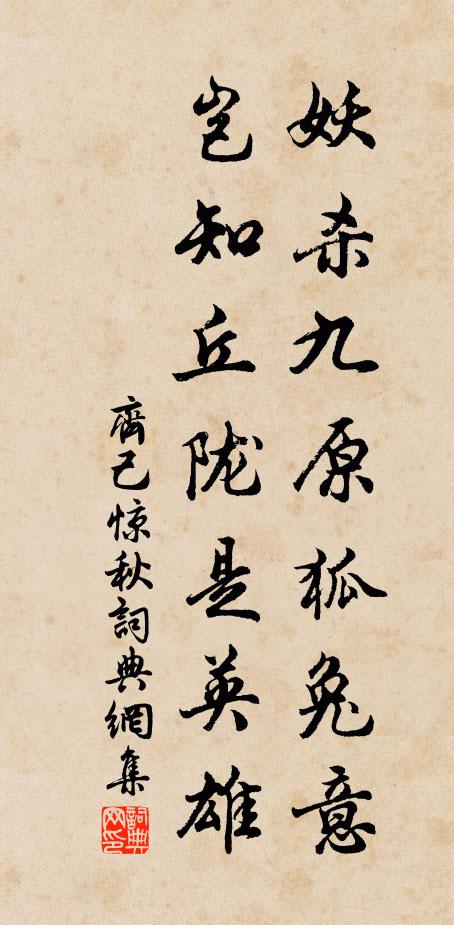 妖杀九原狐兔意
岂知丘陇是英雄
齊己惊秋詞典網集
詞典网印